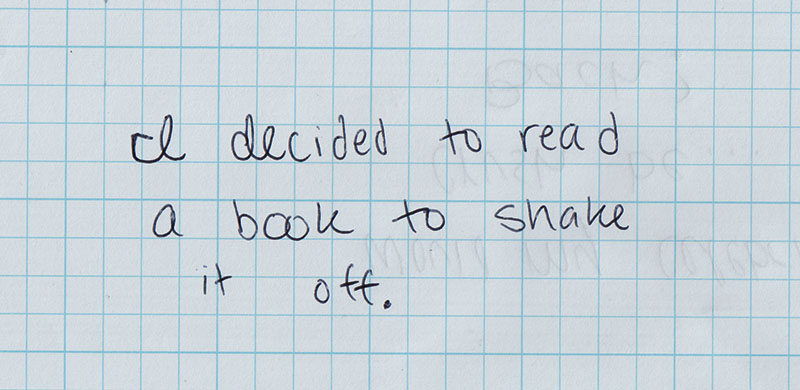 I decided to read
a book to shake
it off.